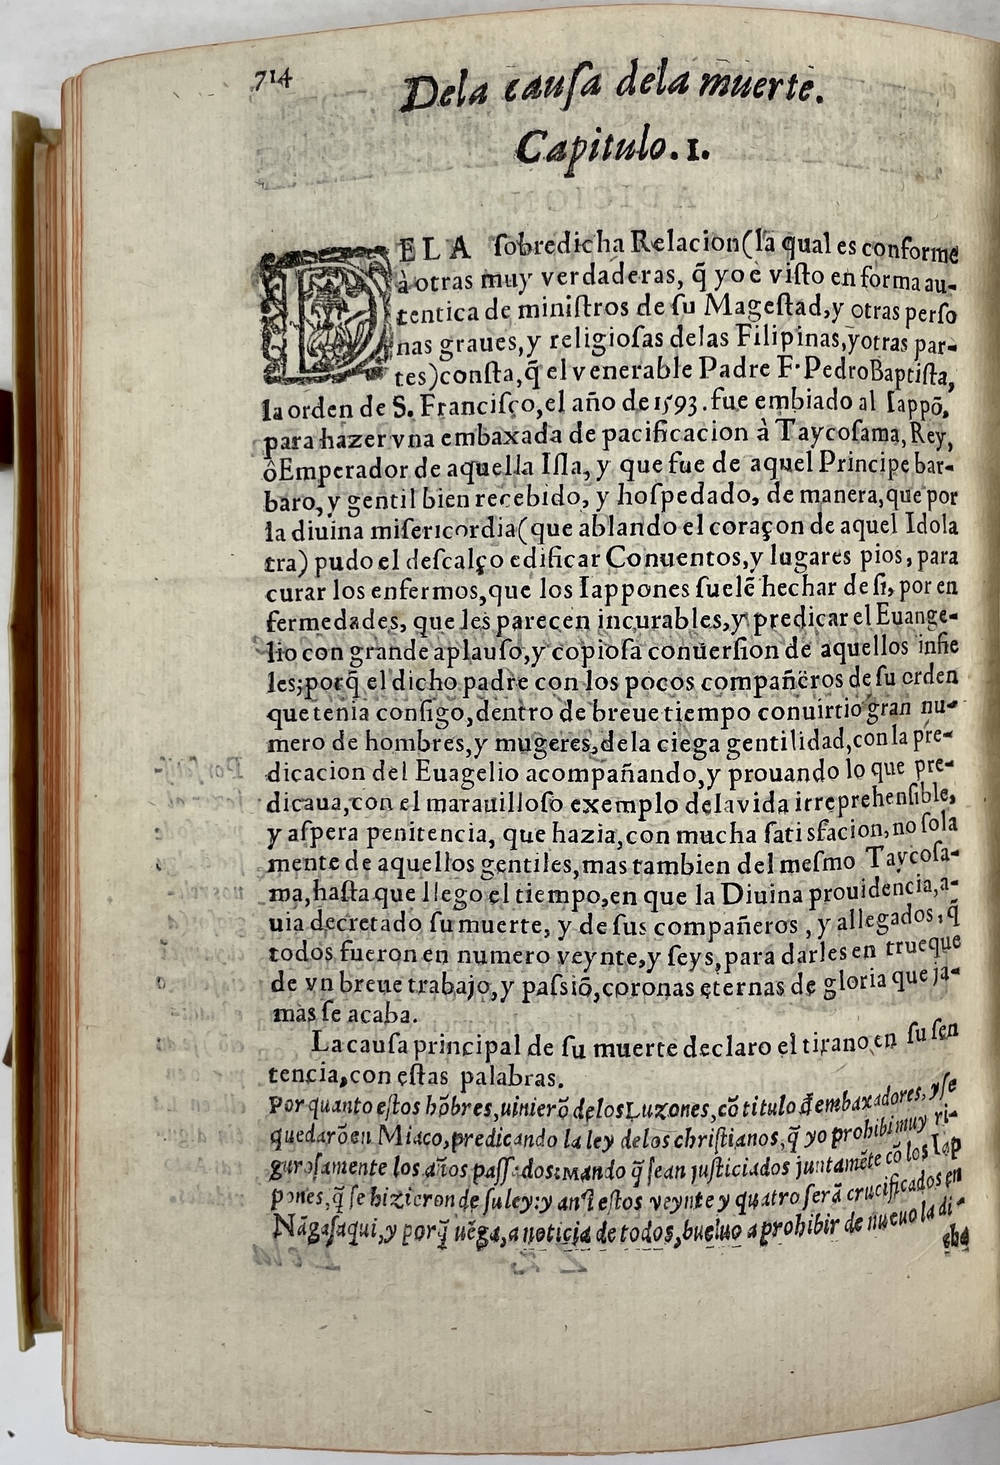 714
Dela causa dela muerte.
Capitulo. I.
DELA ſobredicha Relacion (la qual es conforme
à otras muy verdaderas, q̃ yo è viſto en forma au-
tentica de miniſtros de ſu Mageſtad, y otras perſo
nas graues, y religioſas delas Filipinas, y otras par-
tes) conſta, q̃ el venerable Padre F. Pedro Baptiſta,
la orden de S. Franciſço, el año de 1593. fue embiado al Iappõ,
para hazer vna embaxada de pacificacion à Taycoſama, Rey,
ô Emperador de aquella Iſla, y que fue de aquel Principe bar-
baro, y gentil bien recebido, y hoſpedado, de manera, que por
la diuina miſericordia (que ablando el coraçon de aquel Idola
tra) pudo el deſcalço edificar Conuentos, y lugares pios, para
curar los enfermos, que los Iappones ſuelẽ hechar de ſi, por en
fermedades, que les parecen incurables, y predicar el Euange-
lio con grande aplauſo, y copioſa conuerſion de aquellos infie
les; porq̃ el dicho padre con los pocos compañeros de ſu orden
que tenia conſigo, dentro de breue tiempo conuirtio gran nu-
mero de hombres, y mugeres, dela ciega gentilidad, con la pre-
dicacion del Euagelio acompañando, y prouando lo que pre-
dicaua, con el marauilloſo exemplo dela vida irreprehenſible,
y aſpera penitencia, que hazia, con mucha ſatisfacion, no ſola
mente de aquellos gentiles, mas tambien del meſmo Taycoſa-
ma, haſta que llego el tiempo, en que la Diuina prouidencia, a-
uia decretado ſu muerte, y de ſus compañeros, y allegados, q̃
todos fueron en numero veynte, y ſeys, para darles en trueque
de vn breue trabajo, y paſsiõ, coronas eternas de gloria que ja-
mas ſe acaba.
La cauſa principal de ſu muerte declaro el tirano en ſu ſen
tencia, con eſtas palabras.
Por quanto eſtos hõbres, uinierõ de los Luzones, cõ titulo đ embaxadores, y ſe
quedarõ en Miaco, predicando la ley de los chriſtianos, q̃ yo prohibi muy ri-
guroſamente los años paſſados: Mando q̃ ſean juſticiados juntamẽte cõ los Iap
pones, q̃ ſe hizieron de ſu ley: y anſi eſtos veynte y quatro ſerã crucificados en
Nãgaſaqui, y porq̃ uẽga, a noticia de todos, bueluo a prohibir de nueuo la di-
cha